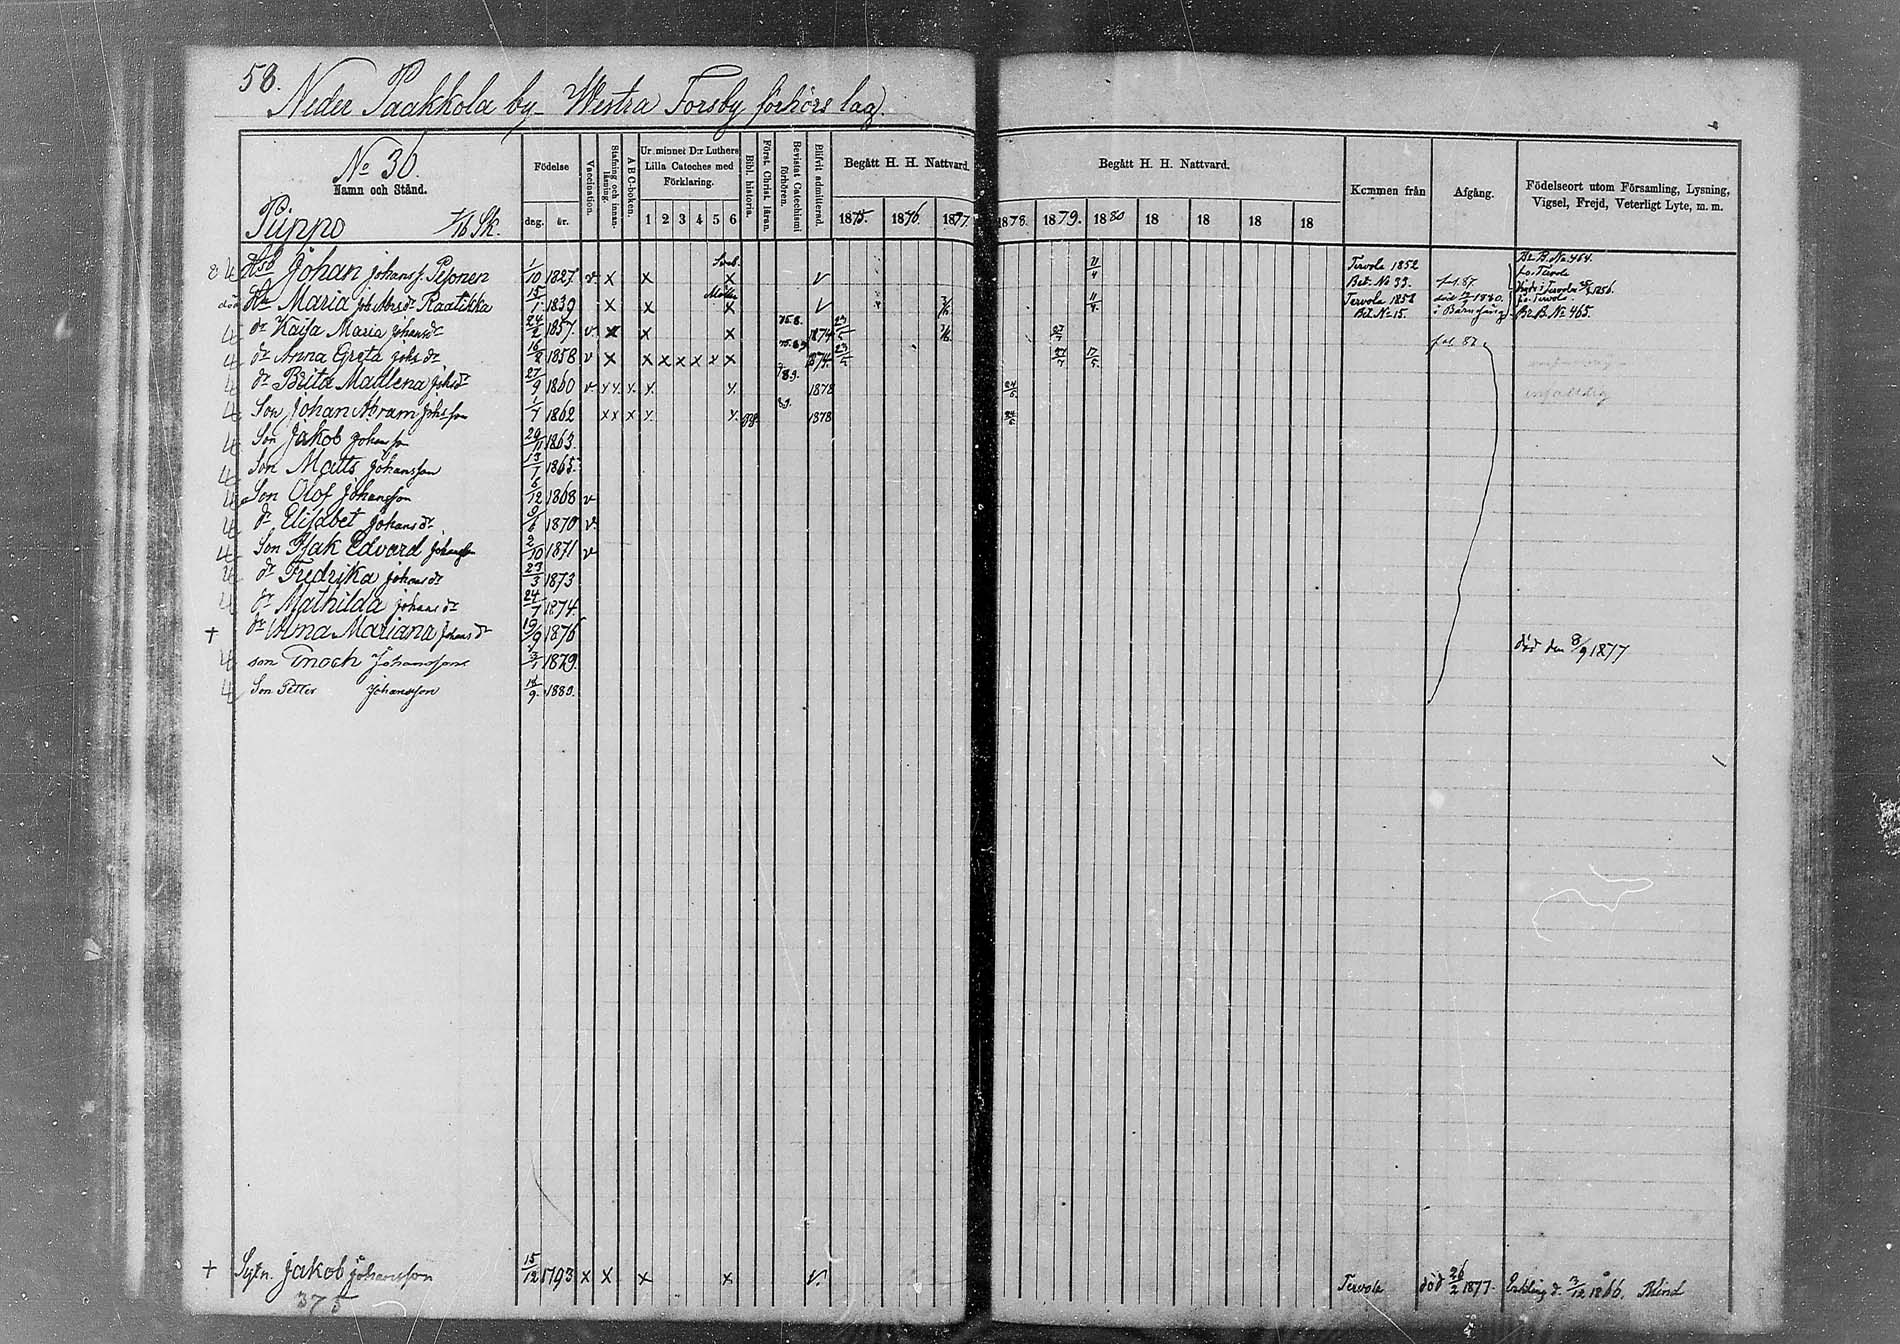 58.
Neder Paakkola by Westra Forsby förhörs lag.
No 36.
Namn och Stånd.
Piippo 1/16 Sk.
Födelse
dag. år.
Vaccination.
Stafning och innanläsning.
ABC-boken.
Ur minnet D:r Luthers Lilla Cateches med Förklaring.
1 2 3 4 5 6
Bibl. historia.
Först. Christ. läran.
Bevistat Catechismi förhören.
Blifvit admitterad.
Begått H. H. Nattvard.
1875. 1876. 1877.
Begått H. H. Nattvard.
1878. 1879. 1880 18 18 18 18
Kommen från
Afgång.
Födelseort utom Församling, Lysning, Vigsel, Frejd, Veterligt Lyte, m. m.
Johan Johanss. Pesonen 1/10 1827 v x x Svab. x v 11/4 Tervola 1852 Bet. No 33. fol. 87. Br. B. No 464. fö. Tervola
död Maria Raatikka 15/1 1839 x x x v 11/4 Tervola 1857 Bet. No 15. död 1880. i Barnsäng Br. B. No 465. fö. Tervola.
dr Kaisa Maria Johansdr 24/2 1857 v x x x 75.8. 1874 23/5 27/7
dr Anna Greta Johsdr 16/2 1858 v x x x x x x x 23/5 27/7 17/5 fol. 87
dr Brita Madlena Johsdr 27/9 1860 v x x x x x 1878 24/5
Son Johan Abram Johsson 1/7 1862 x x x x x 1878 24/5 enfaldig
Son Jakob Johansson 29/11 1863.
Son Matts Johansson 13/7 1865.
Son Olof Johansson 6/12 1868 v
dr Elisabet Johansdr 9/6 1870 v
Son Isak Edvard Johansson 9/10 1871 v
dr Fredrika Johansdr 23/3 1873
dr Mathilda Johansdr 24/7 1874.
+ dr Alma Mariana Johansdr 19/9 1876 död den 8/9 1877
son Enoch Johansson 3/1 1879.
Son Petter Johansson 1880.
+ Sytn. Jakob Johansson 15/12 1793 x x x x v Tervola död 26/2 1877. Enkling d. 3/12 1866. Blind
375